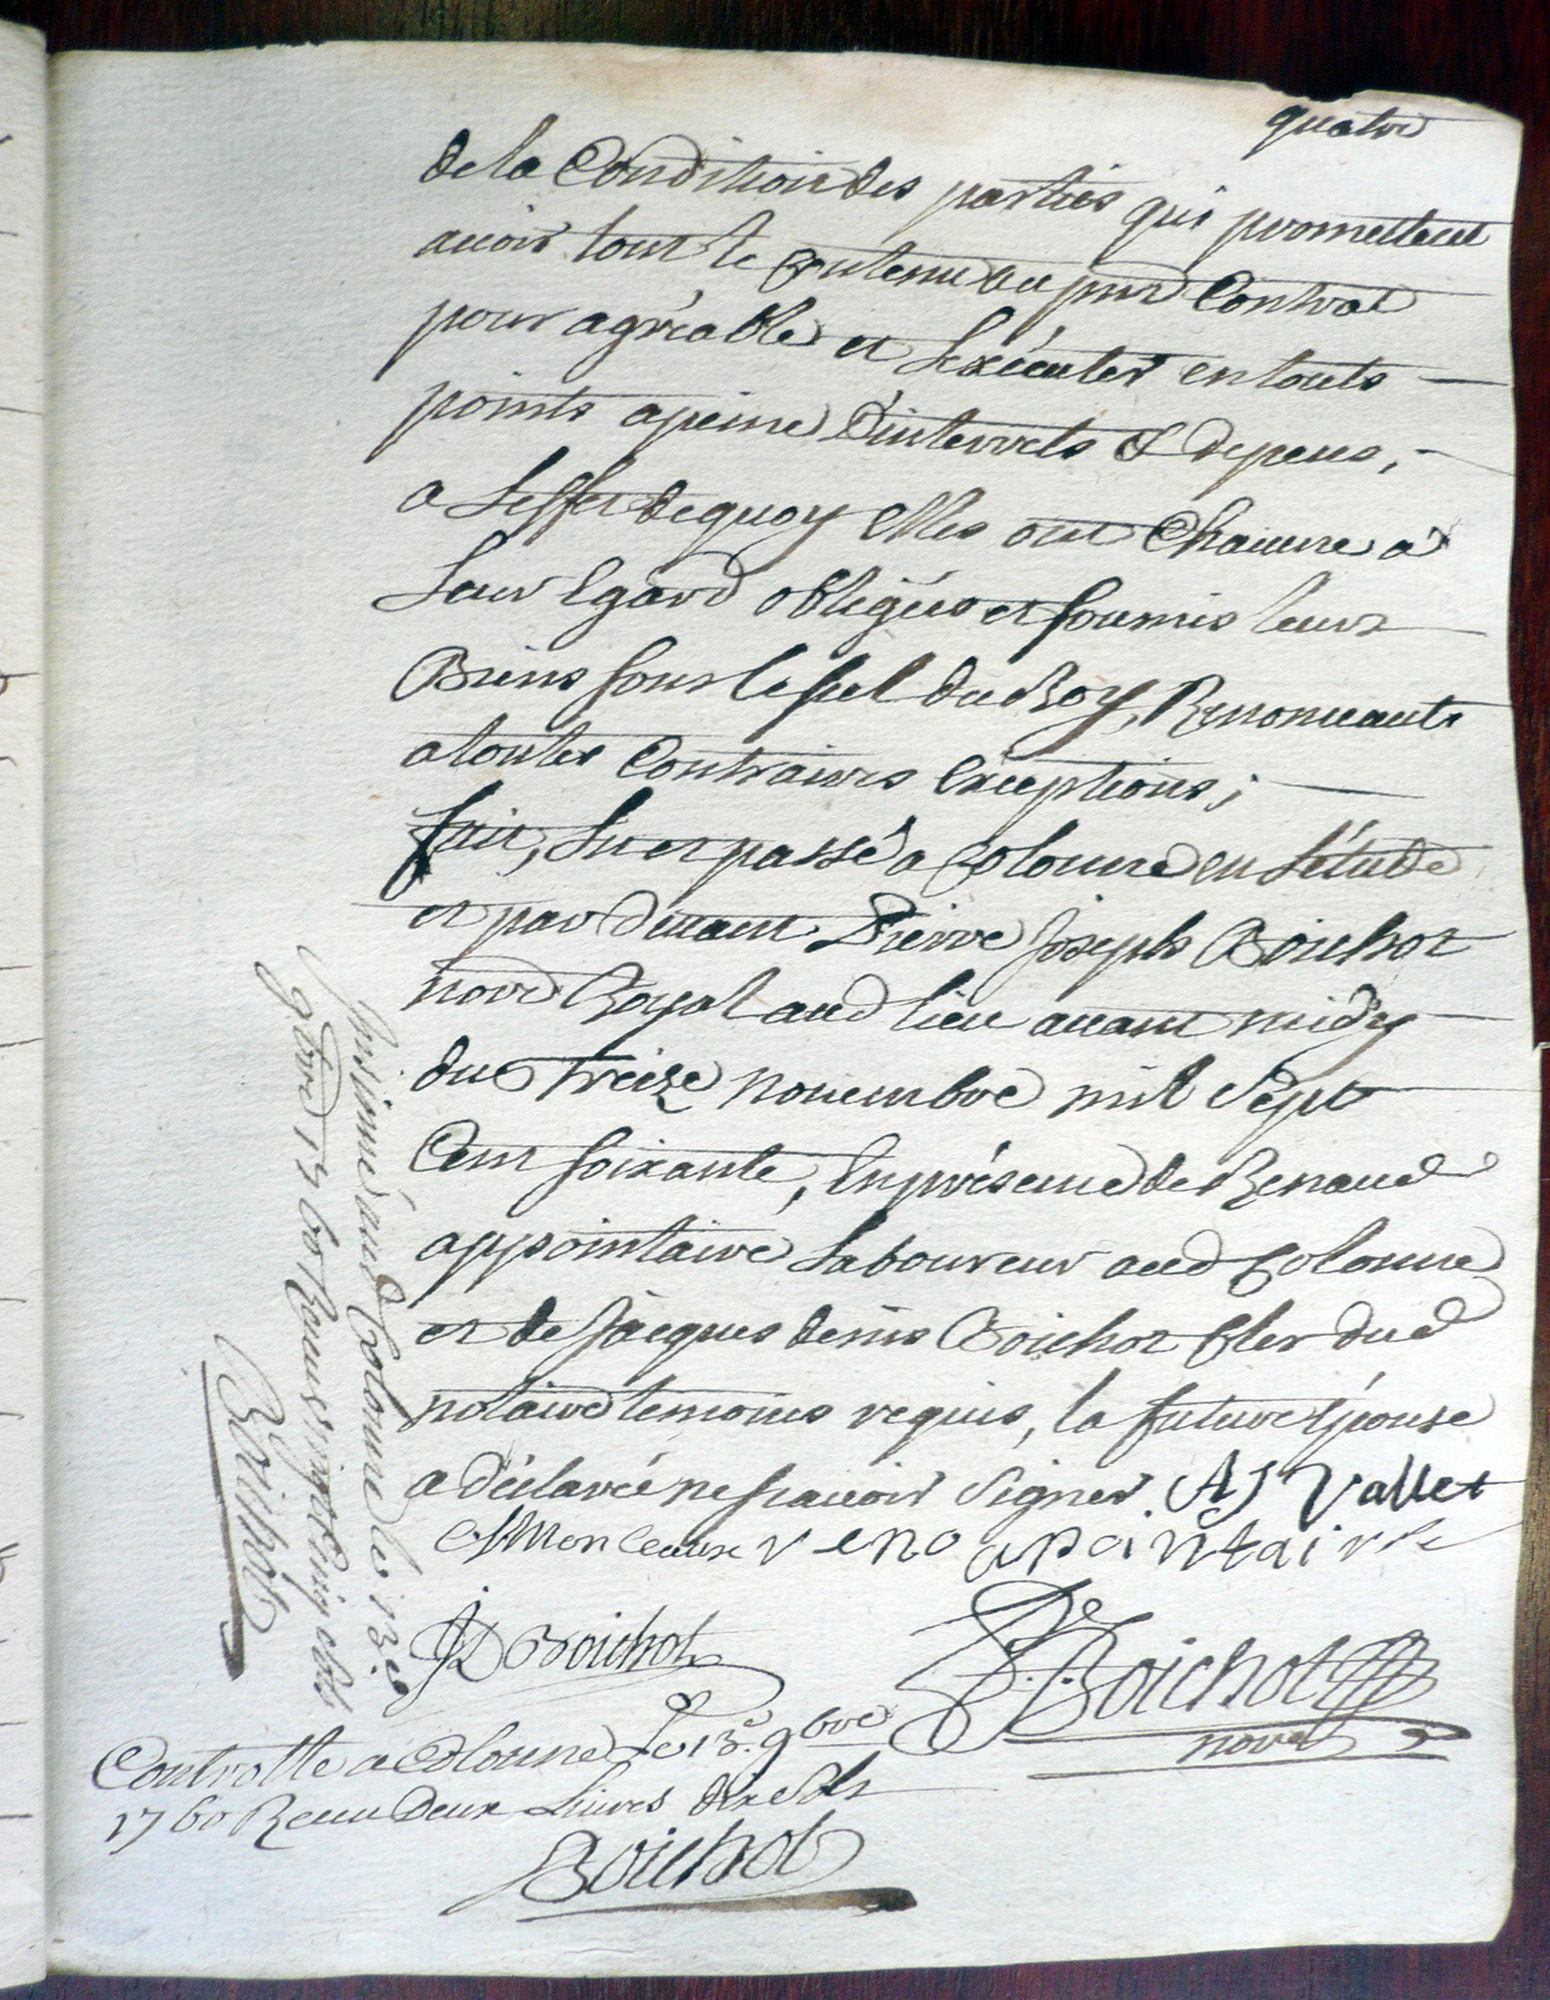 quatre
de la Condition des parties qui promettent
avoir tout le Contenu au pnt Contrat
pour agréable et L'exécuter en touts
points a peine d'interrets & depens,
a Leffet de quoy elles ont Chacune a
Leur Egard obligées et soumis leurs
Biens sous le scel du Roy, Renonceants
a toutes Contraires Exceptions;
fait, Lu et passé a Colonne en L'étude
et par devant Pierre Joseph Boichot
nore Royal aud lieu avant midy
du treize novembre mil Sept
Cent soixante, En présence de Renaud
appointaire Laboureur aud Colonne
et de Jacques denis Boichot Cler dud
notaire temoins requis, la future Épouse
a déclarée ne scavoir signer. AJ Vallet
reno apointaire
JD Boichot
P.J. Boichot
nore
Insinué aud Colonne le 13e
9bre 1760 Recus vingt Cinq sols
Boichot
Controlle a Colonne Le 13e. 9bre
1760 Recu Deux Livres dix sols
Boichot